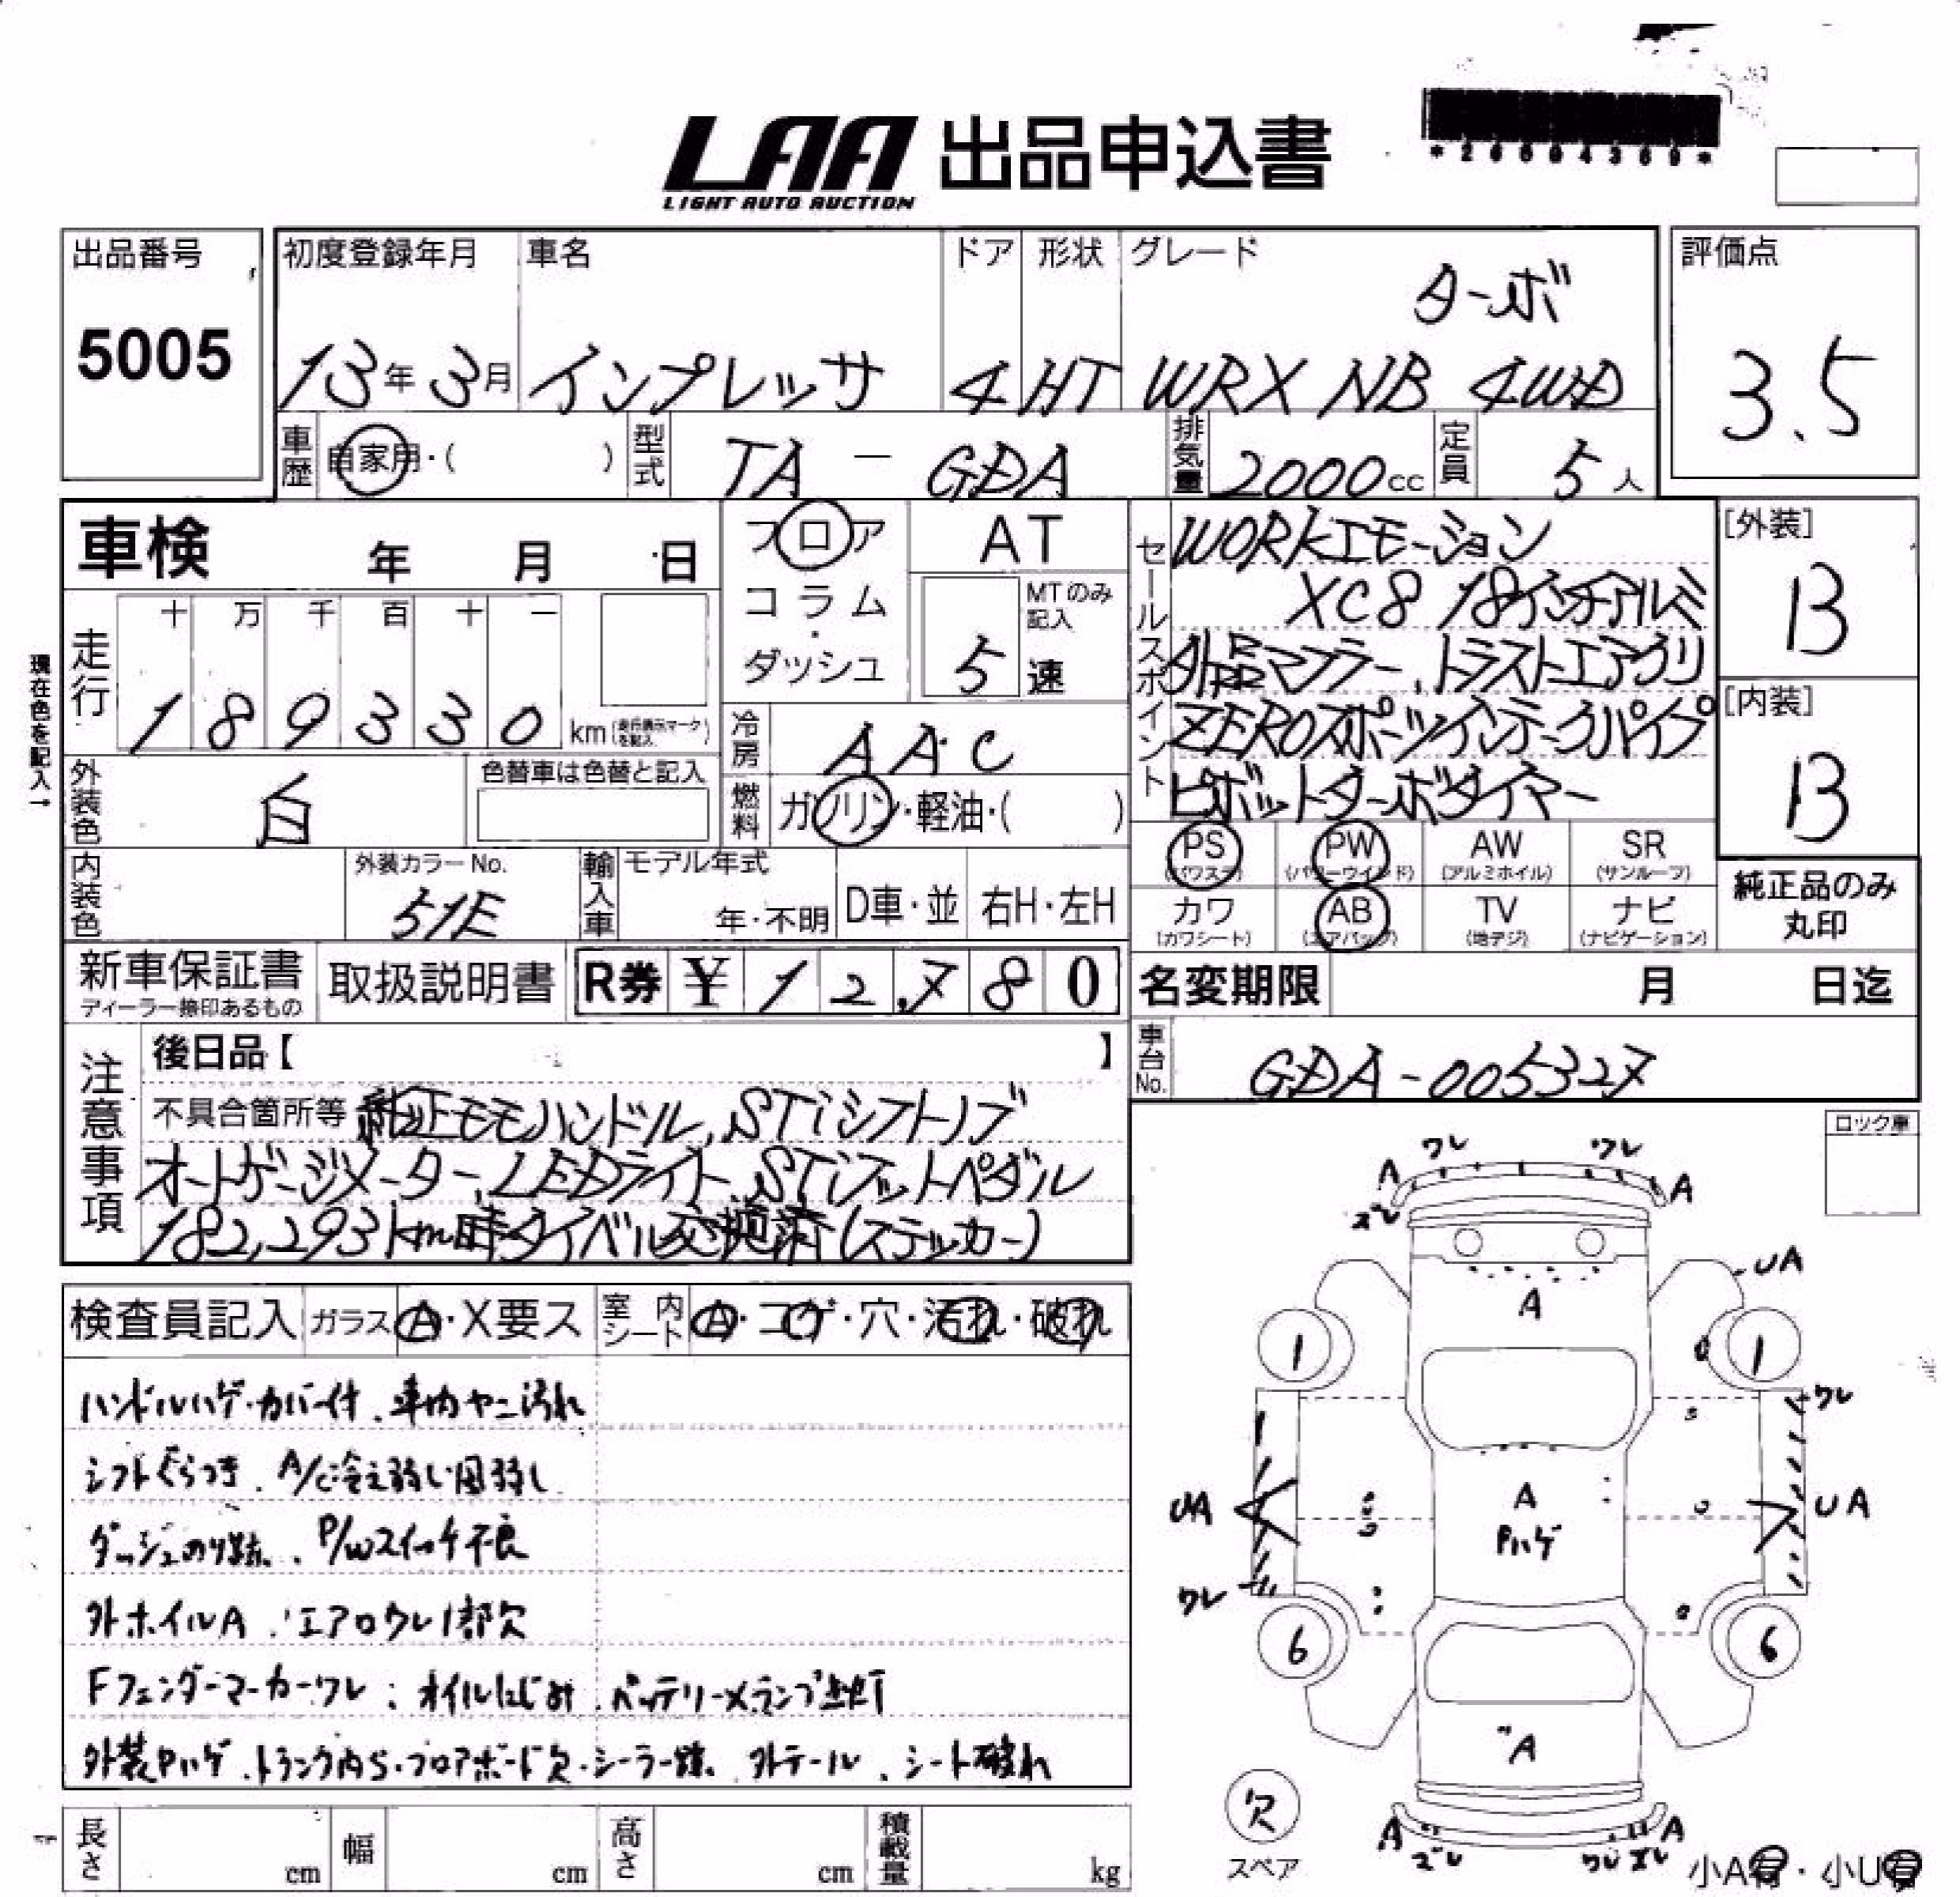 LAA 出品申込書
LIGHT AUTO AUCTION
出品番号
5005
初度登録年月
13年 3月
車名
インプレッサ
ドア
4
形状
HT
グレード
ターボ
WRX NB 4WD
評価点
3.5
車歴
自家用・( )
型式
TA - GDA
排気量
2000cc
定員
5人
車検 年 月 日
フロア
コラム
・
ダッシュ
AT
MTのみ記入
5速
現在色を記入→
走行
十 万 千 百 十 一
1 8 9 3 3 0 km
(走行表示マークを記入)
冷房
AAC
燃料
ガソリン・軽油・( )
外装色
白
色替車は色替と記入
内装色
外装カラーNo.
51E
輸入車
モデル年式
年・不明
D車・並
右H・左H
セールスポイント
WORKエモーション
XC8 18インチアルミ
外品マフラー、トラストエアクリ
ZEROスポーツインテークパイプ
ピボットターボタイマー
[外装]
B
[内装]
B
PS (パワステ)
PW (パワーウインド)
AW (アルミホイル)
SR (サンルーフ)
カワ (カワシート)
AB (エアバッグ)
TV (地デジ)
ナビ (ナビゲーション)
純正品のみ
丸印
新車保証書
ディーラー捺印あるもの
取扱説明書
R券 ¥ 12,780
名変期限 月 日迄
車台No.
GDA-005327
注意事項
後日品【 】
不具合箇所等 純正モモハンドル、STiシフトノブ
オートゲージメーター、LEDライト、STiフットペダル
182,293km時タイベル交換済(ステッカー)
検査員記入
ガラス
A・X要ス
室内
シート
A・コゲ・穴・汚れ・破れ
ハンドルハゲ・カバー付、車内ヤニ汚れ
シフトぐらつき、A/C冷え弱い風弱し
ダッシュのり跡、P/Wスイッチ不良
外ホイルA、エアロワレ1部欠
Fフェンダーマーカーワレ、オイルにじみ、バッテリーメランプ点灯
外装Pハゲ、トランク内S・フロアボード欠・シーラー跡、外テール、シート破れ
長さ cm
幅 cm
高さ cm
積載量 kg
ロック車
ワレ ワレ
A A
ズレ
UA
A
1 1
ワレ
UA A UA
Pハゲ
ワレ
6 6
A
欠
スペア
A A
ズレ ワレ ズレ
小A有・小U有